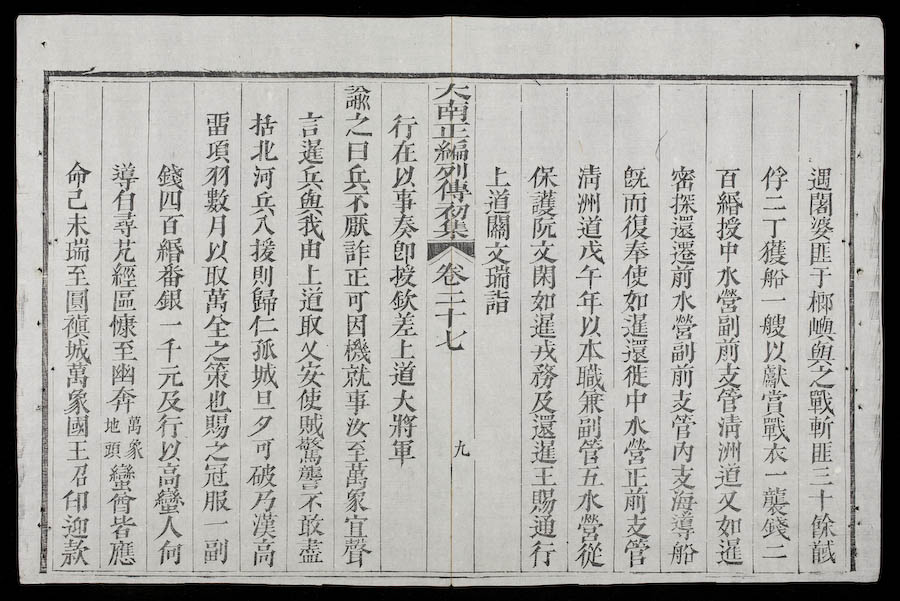 遇闍婆匪于榔嶼與之戰斬匪三十餘馘
俘二丁獲船一艘以獻賞戰衣一襲錢二
百緡授中水營副前支管清洲道又如暹
密探還遷前水營副前支管內支海導船
旣而復奉使如暹還從中水營正前支管
淸洲道戊午年以本職兼副管五水營從
保護阮文閑如暹戎務及還暹王賜通行
上道關文瑞詣
大南正編列傳初集 卷二十七 九
行在以事奏卽授欽差上道大將軍
諭之曰兵不厭詐正可因機就事汝至萬象宜聲
言暹兵與我由上道取乂安使賊驚讋不敢盡
括北河兵入援則歸仁孤城旦夕可破乃漢高
畱項羽數月以取萬全之策也賜之冠服一副
錢四百緡番銀一千元及行以高蠻人何
導自尋芃經區慷至幽奔萬象地頭蠻酋皆應
命己未瑞至圓禛城萬象國王召印迎款